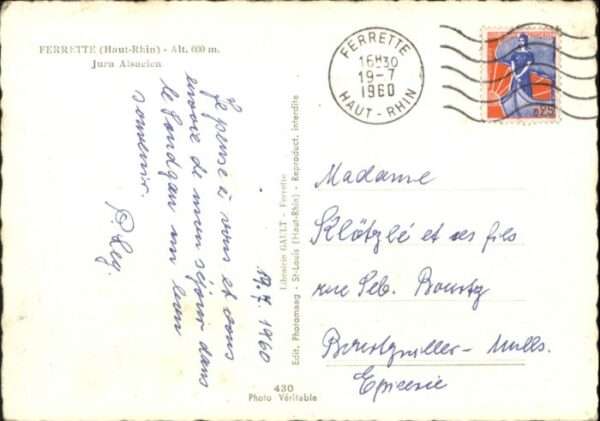 FERRETTE (Haut-Rhin) - Alt. 600 m.
Jura Alsacien
FERRETTE
16H30
19-7
1960
HAUT-RHIN
0,25
19.7.1960
Je pense à vous et vous
envoie de mon séjour dans
le Sundgau un bon
souvenir.
Librairie GAULT - Ferrette
Edit. Photomaag - St-Louis (Haut-Rhin) - Reproduct. interdite
Madame
Klötzlé et ses fils
rue Seb. Bourtz
Bourtzwiller - Mulh.
Epicerie
430
Photo Véritable